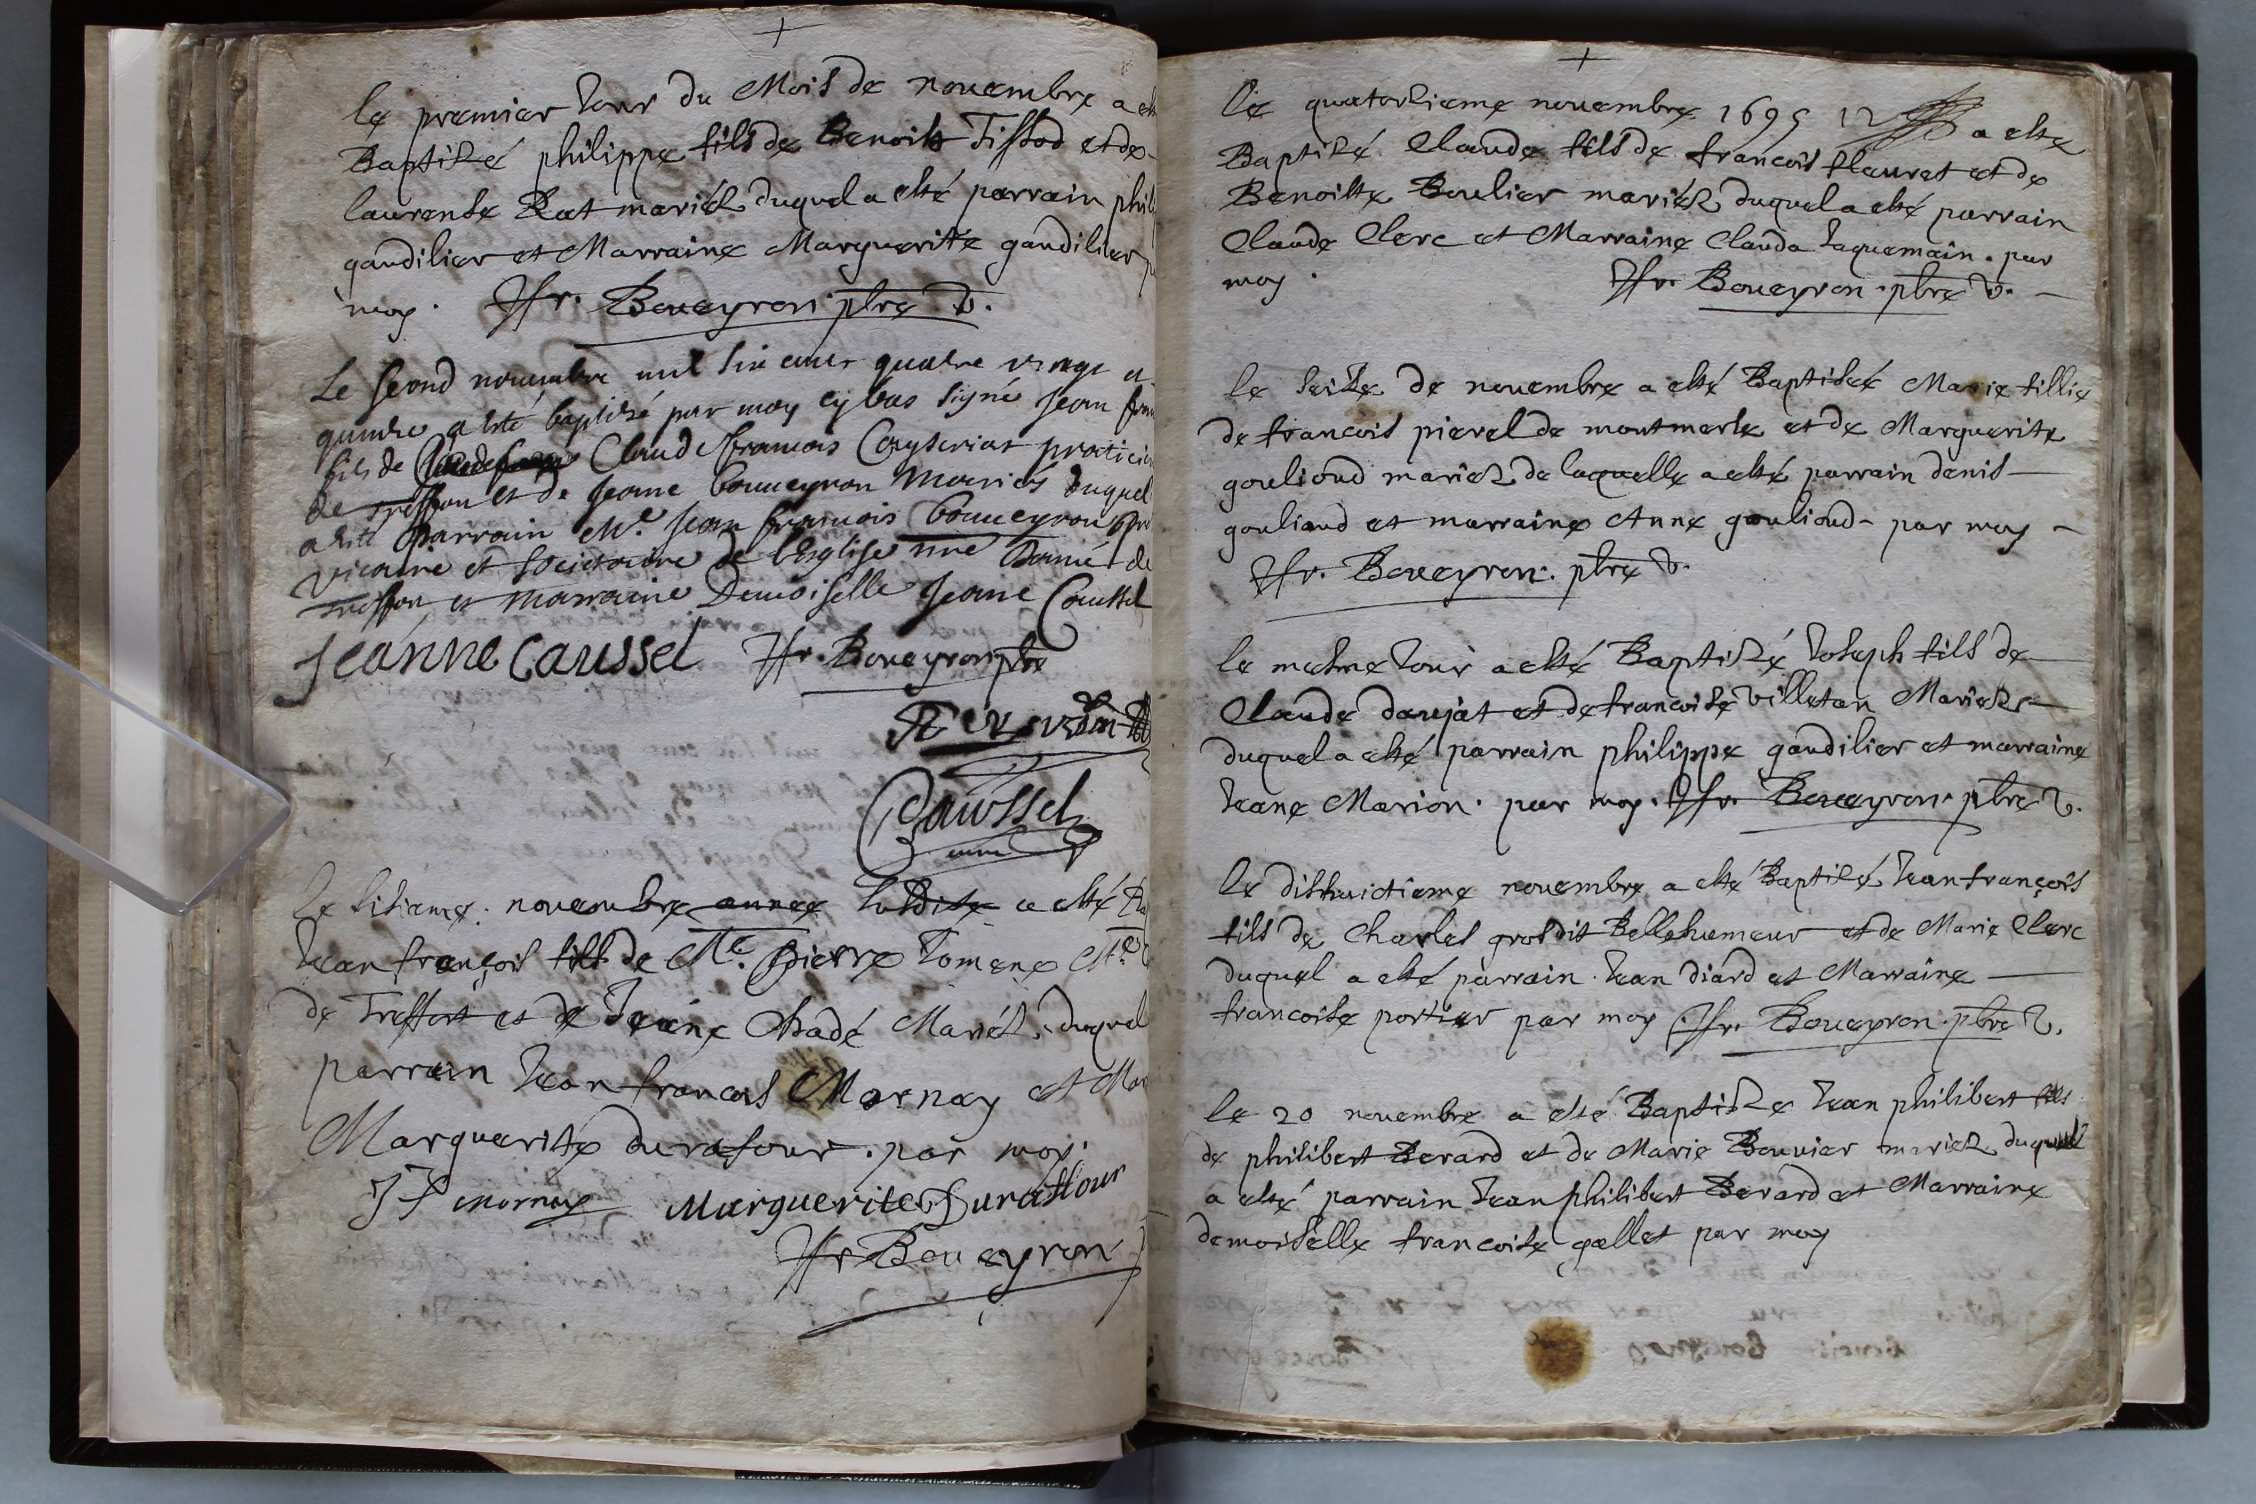 +
le premier Jour du Mois de novembre a esté
Baptizé philippe fils de Benoist Tissod et de
laurense Rat mariéz duquel a esté parrain phili
gaudilier et Marraine Marguerite gaudilier p
moy. Jfr. Boueyron. pbre v.
Le second novembre mil six cens quatre vingt et
quinze a esté baptizé par moy cy bas signé Jean fran
fils de Claude francois Cayseriat praticien
de treffort et de Jeane bouueyron Mariés duquel
a esté parrain Mre Jean francois bouueyron pbre
vicaire et Societaire de l'Eglise nre Dame de
treffort et marraine Demoiselle Jeane Caussel
Jeanne Caussel Jfr. Boueyron pbre
Caussel
Le sisieme. novembre année susdite a esté Ba
Jean françois fils de Me. Pierre Tomene Me
de Treffort et de Jeane Chadé Mariéz. duquel
parrain Jean francois Mornay et Mar
Marguerite durafour. par moy.
JF Mornay Marguerite Duraffour
Jfr Boueyron
+
le quatorzieme novembre 1695 a esté
Baptizé Claude fils de francois fleuret et de
Benoiste Boulier mariéz duquel a esté parrain
Claude Clerc et Marraine Clauda Jaquemain. par
moy. Jfr. Boueyron. pbre v.
le seize de novembre a esté Baptisée Marie fillie
de francois pierel de montmerle et de Marguerite
goulioud mariéz de laquelle a esté parrain denis
gouliaud et marraine Anne goulioud par moy
Jfr. Boueyron. pbre v.
le mesme Jour a esté Baptizé Joseph fils de
Claude daujat et de francoise villetan Mariéz
duquel a esté parrain philippe gaudilier et marraine
Jeane Marion. par moy. Jfr. Boueyron. pbre v.
le dishuictieme novembre a esté Baptizé Jean françois
fils de Charles gros dit Bellehumeur et de Marie Clerc
duquel a esté parrain. Jean diard et Marraine
francoise portier par moy Jfr. Boueyron. pbre v.
le 20 novembre a esté Baptizé Jean philibert fils
de philibert Berard et de Marie Bouvier mariéz duquel
a esté parrain Jean philibert Berard et Marraine
demoiselle francoise gallet par moy